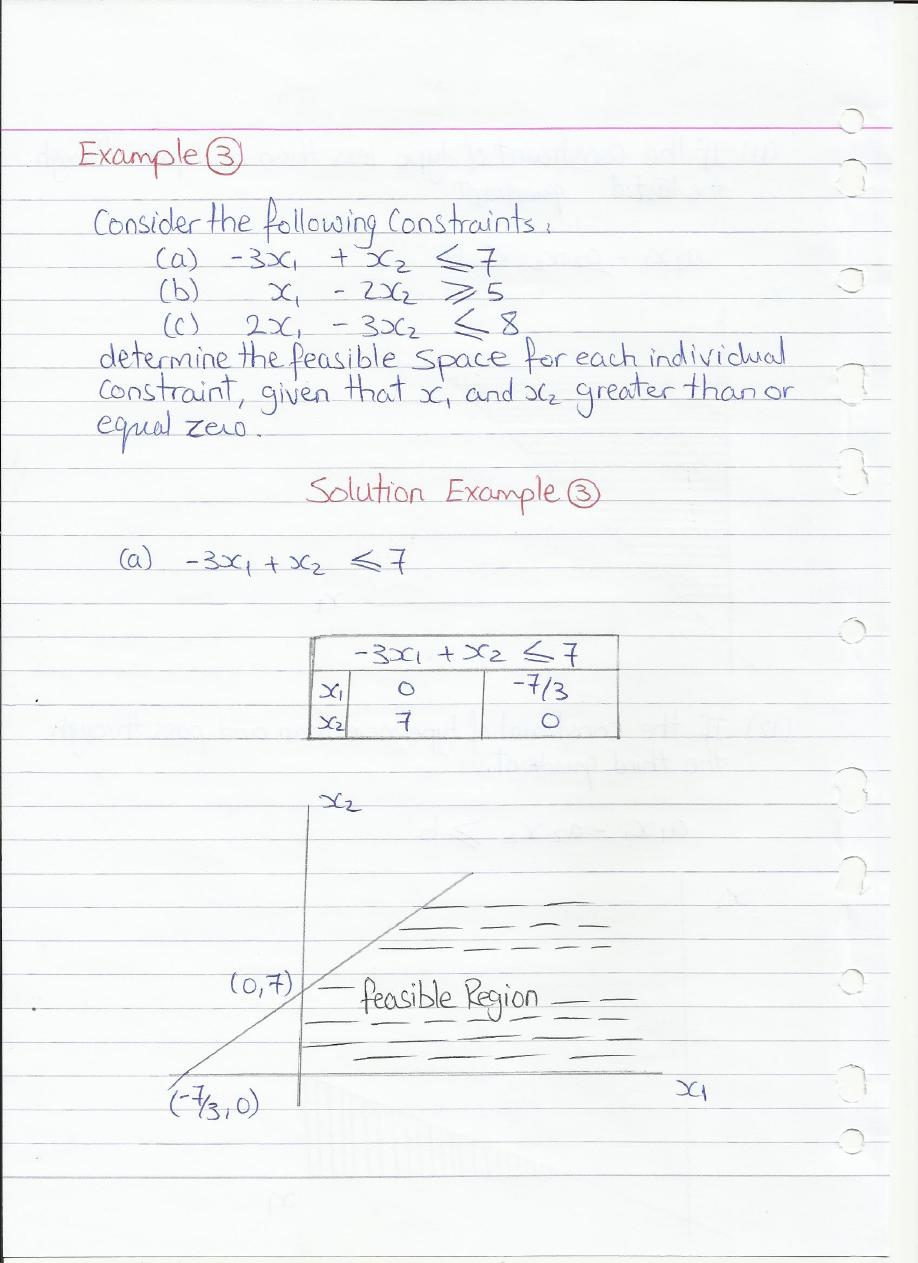 Example ③
Consider the following Constraints:
(a) -3x₁ + x₂ ≤ 7
(b) x₁ - 2x₂ ≥ 5
(c) 2x₁ - 3x₂ ≤ 8
determine the feasible space for each individual
constraint, given that x₁ and x₂ greater than or
equal zero.
Solution Example ③
(a) -3x₁ + x₂ ≤ 7
-3x₁ + x₂ ≤ 7
x₁ 0 -7/3
x₂ 7 0
x₂
(0,7)
feasible Region
x₁
(-7/3, 0)